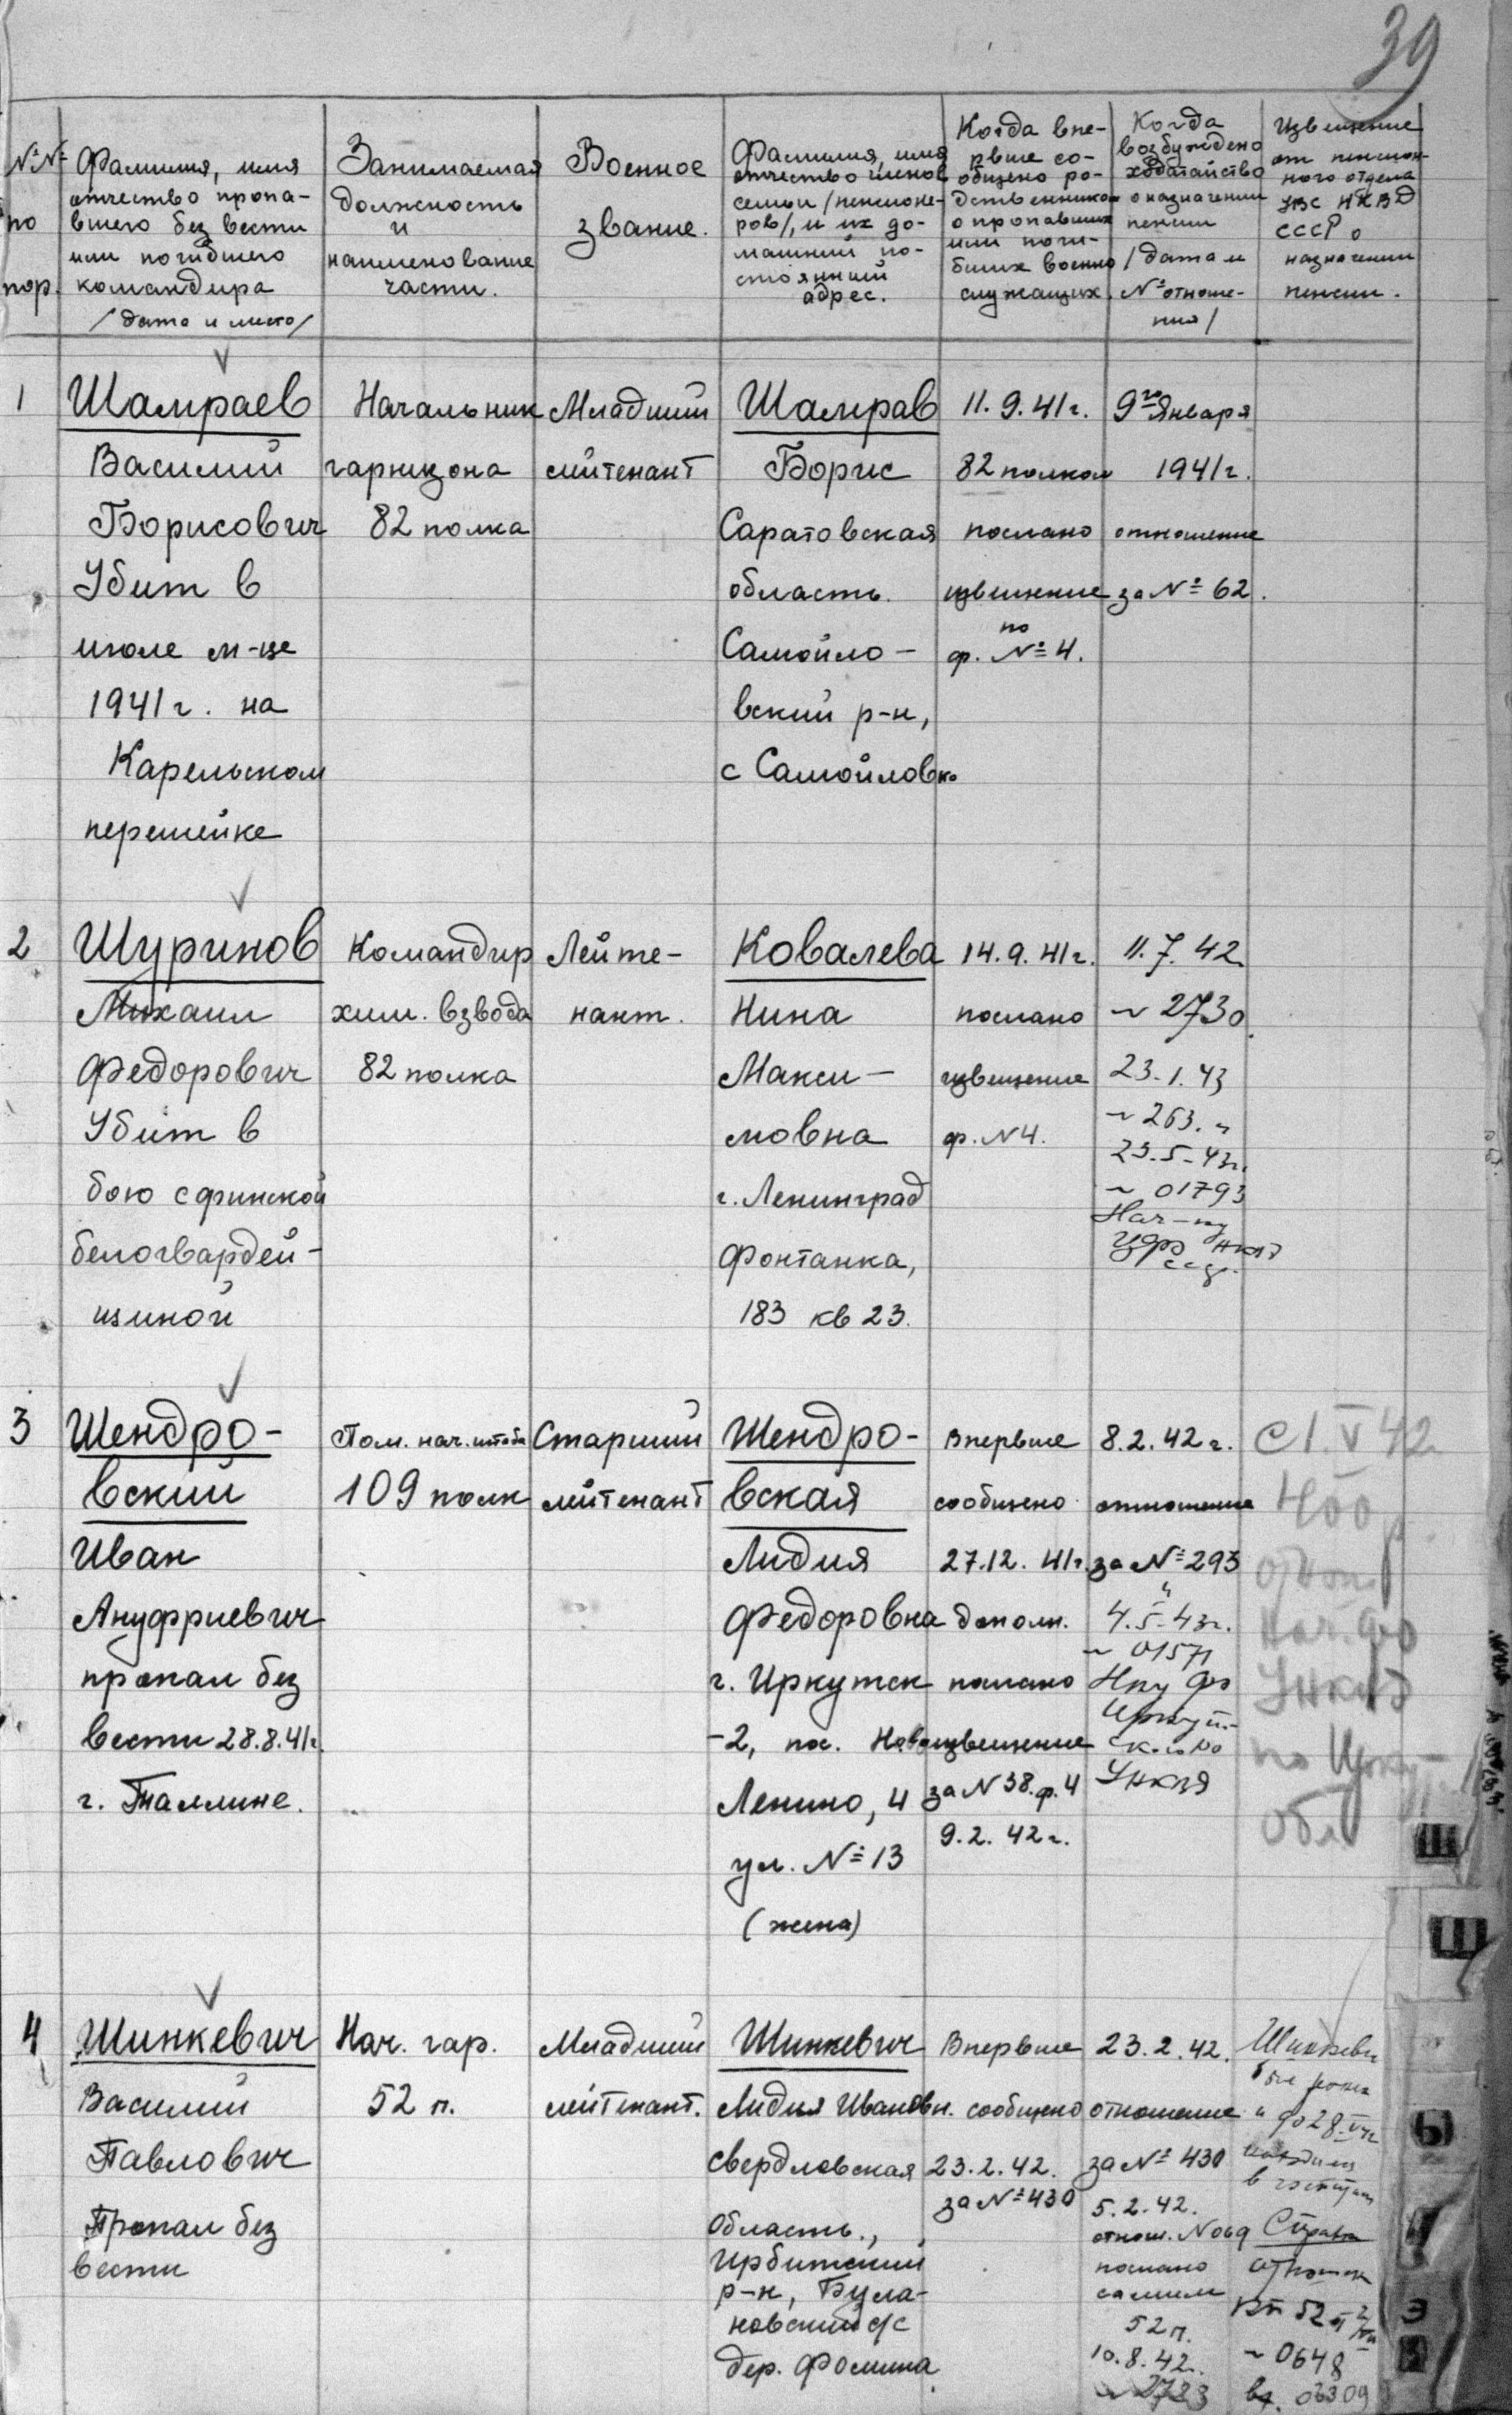 39
№№ по пор.
Фамилия, имя
отчество пропа-
вшего без вести
или погибшего
командира
/дата и место/
Занимаемая
должность
и
наименование
части.
Военное
звание.
Фамилия, имя
отчество членов
семьи /пенсионе-
ров/, и их до-
машний по-
стоянный
адрес.
Когда впе-
рвые со-
общено ро-
дственникам
о пропавших
или поги-
бших военно
служащих.
Когда
возбуждено
ходатайство
о назначении
пенсии
/дата и
№ отноше-
ния/
Извещение
от пенсион-
ного отдела
УВС НКВД
СССР о
назначении
пенсии.
1
Шамраев
Василий
Борисович
Убит в
июле м-це
1941 г. на
Карельском
перешейке
Начальник
гарнизона
82 полка
Младший
лейтенант
Шамрав
Борис
Саратовская
область.
Самойло-
вский р-н,
с Самойловка
11.9.41г.
82 полком
послано
извещение
по
ф. №4.
9го Января
1941г.
отношение
за № 62.
2
Шуринов
Михаил
Федорович
Убит в
бою с финской
белогвардей-
щиной
Командир
хим. взвода
82 полка
Лейте-
нант.
Ковалева
Нина
Макси-
мовна
г. Ленинград
Фонтанка,
183 кв 23.
14.9.41г.
послано
извещение
ф. N4.
11.7.42
~ 2730
23.1.43
~ 263.
23-5-43г.
~ 01793
Нач-ку
3
Шендро-
вский
Иван
Ануфриевич
пропал без
вести 28.8.41г.
г. Таллине.
Пом. нач. штаба
109 полк
Старший
лейтенант
Шендро-
вская
Лидия
Федоровна
г. Иркутск
-2, пос. Ново
Ленино, 4
ул. № 13
(жена)
Впервые
сообщено
27.12.41г.
дополн.
послано
извещение
за N 38. ф. 4
9.2.42г.
8.2.42г.
отношение
за № 293
4.5-43г.
~ 01571
Нку ФО
Иркут-
ского
УНКВД
С 1.V 42
400 р.
Нач. ФО
УНКВД
по Ирку
обл
4
Шинкевич
Василий
Павлович
Пропал без
вести
Нач. гар.
52 п.
Младший
лейтенант.
Шинкевич
Лидия Ивановн.
Свердловская
область.,
Ирбитский
р-н, Була-
новский с/с
дер. Фомина
Впервые
сообщено
23.2.42.
за № 430
23.2.42.
отношение
за № 430
5.2.42.
отнош. N 069
послано
самим
52 п.
10.8.42г.
~ 2723
Шинкеви
в госпитал
Справка
52 п
~ 0648
вх. 03309
Ш
Щ
Ы
Э